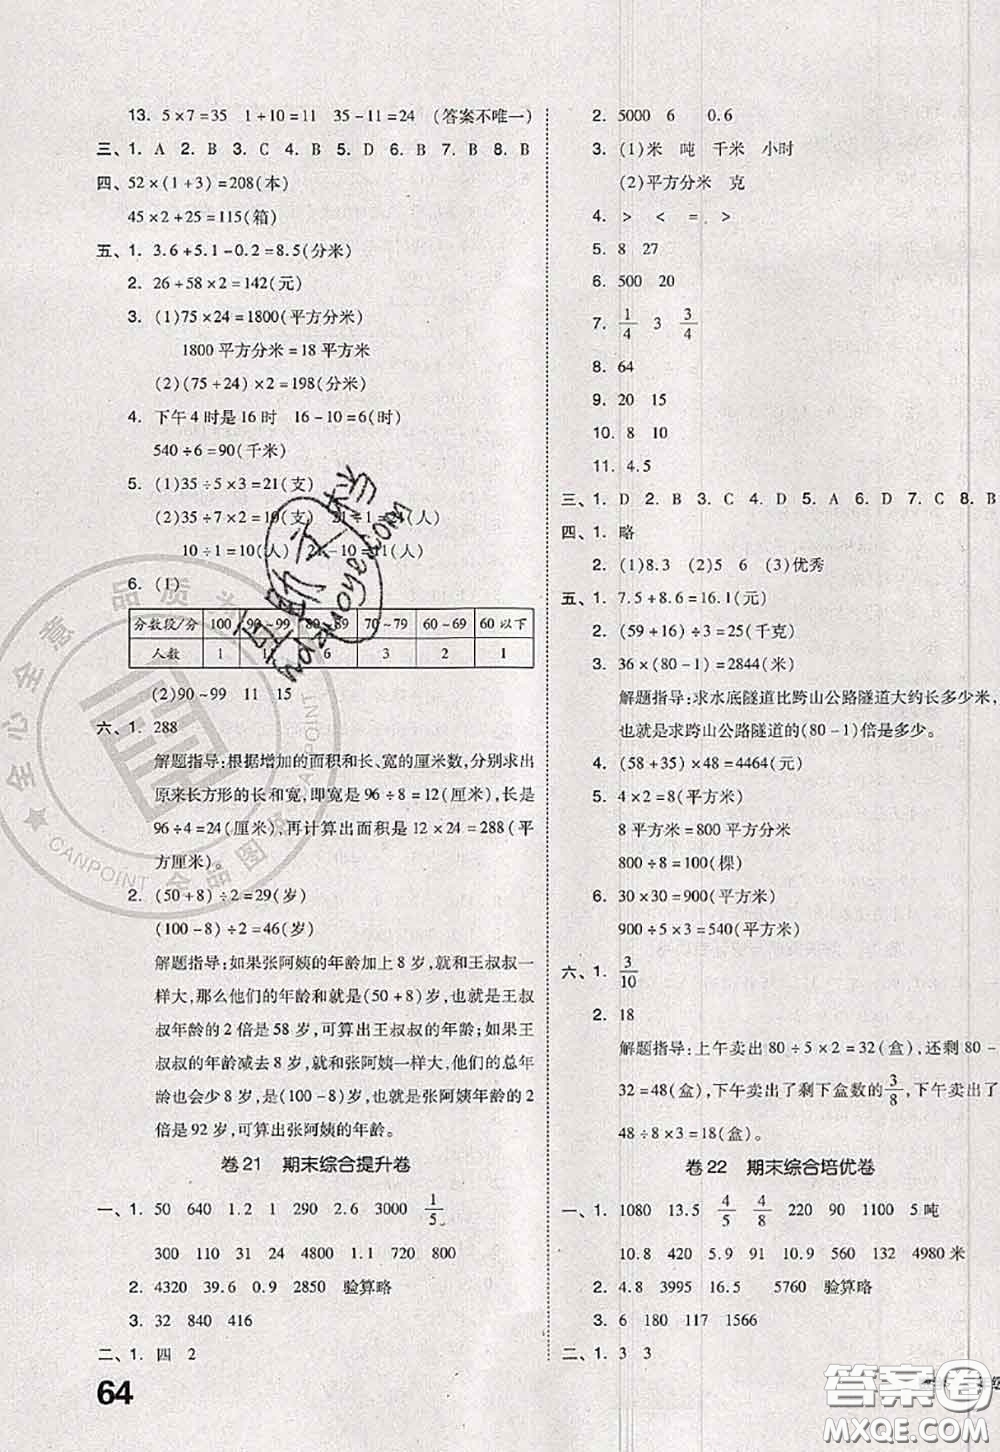 13. 5×7=35 1+10=11 35-11=24 (答案不唯一)
三、1. A 2. B 3. C 4. B 5. D 6. B 7. B 8. B
四、52×(1+3)=208(本)
45×2+25=115(箱)
五、1. 3.6+5.1-0.2=8.5(分米)
2. 26+58×2=142(元)
3. (1)75×24=1800(平方分米)
1800平方分米=18平方米
(2)(75+24)×2=198(分米)
4. 下午4时是16时 16-10=6(时)
540÷6=90(千米)
5. (1)35÷5×3=21(支)
(2)35÷7×2=10(支) 21÷1=21(人)
10÷1=10(人) 21-10=11(人)
6. (1)
分数段/分 100 90~99 80~89 70~79 60~69 60以下
人数 1 11 6 3 2 1
(2)90~99 11 15
六、1. 288
解题指导:根据增加的面积和长、宽的厘米数,分别求出
原来长方形的长和宽,即宽是96÷8=12(厘米),长是
96÷4=24(厘米),再计算出面积是12×24=288(平
方厘米)。
2. (50+8)÷2=29(岁)
(100-8)÷2=46(岁)
解题指导:如果张阿姨的年龄加上8岁,就和王叔叔一
样大,那么他们的年龄和就是(50+8)岁,也就是王叔
叔年龄的2倍是58岁,可算出王叔叔的年龄;如果王
叔叔的年龄减去8岁,就和张阿姨一样大,他们的总年
龄也会少8岁,是(100-8)岁,也就是张阿姨年龄的2
倍是92岁,可算出张阿姨的年龄。
卷21 期末综合提升卷
一、1. 50 640 1.2 1 290 2.6 3000 1/5
300 110 31 24 4800 1.1 720 800
2. 4320 39.6 0.9 2850 验算略
3. 32 840 416
二、1. 四 2
64
2. 5000 6 0.6
3. (1)米 吨 千米 小时
(2)平方分米 克
4. > < = >
5. 8 27
6. 500 20
7. 1/4 3 3/4
8. 64
9. 20 15
10. 8 10
11. 4.5
三、1. D 2. B 3. C 4. C 5. A 6. D 7. C 8. B
四、1. 略
2. (1)8.3 (2)5 6 (3)优秀
五、1. 7.5+8.6=16.1(元)
2. (59+16)÷3=25(千克)
3. 36×(80-1)=2844(米)
解题指导:求水底隧道比跨山公路隧道大约长多少米,
也就是求跨山公路隧道的(80-1)倍是多少。
4. (58+35)×48=4464(元)
5. 4×2=8(平方米)
8平方米=800平方分米
800÷8=100(棵)
6. 30×30=900(平方米)
900÷5×3=540(平方米)
六、1. 3/10
2. 18
解题指导:上午卖出80÷5×2=32(盒),还剩80-
32=48(盒),下午卖出了剩下盒数的3/8,卖出了
48÷8×3=18(盒)。
卷22 期末综合培优卷
一、1. 1080 13.5 4/5 4/8 220 90 1100 5吨
10.8 420 5.9 91 560 132 4980米
2. 4.8 3995 16.5 5760 验算略
3. 6 180 117 1566
二、1. 3 3
品质为
全心全意
CANPOINT
CANPOINT 全品图
答案圈
MXQE.COM